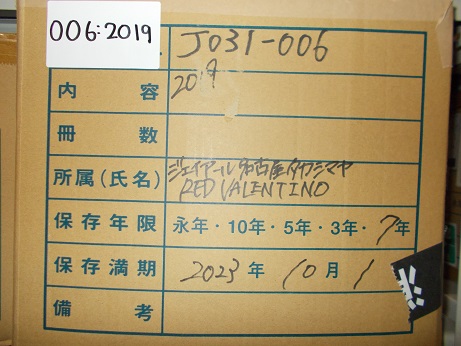 006:2019
J031-006
内容 2019
冊数
所属(氏名) ジェイアール名古屋タカシマヤ
RED VALENTINO
保存年限 永年・10年・5年・3年・7年
保存満期 2023年 10月 1
備考